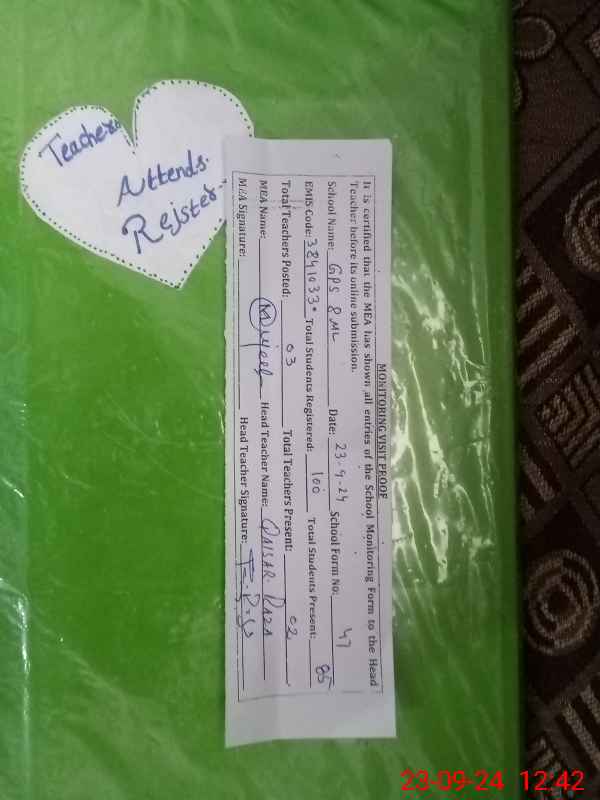 Teacher
Attends.
Rejster
MONITORING VISIT PROOF
It is certified that the MEA has shown all entries of the School Monitoring Form to the Head
Teacher before its online submission.
School Name: GPS 8 ML Date: 23-9-24 School Form No: 47
EMIS Code: 3841033 Total Students Registered: 100 Total Students Present: 85
Total Teachers Posted: 03 Total Teachers Present: 02
MEA Name: Head Teacher Name: QAISAR RAZA
MEA Signature: Head Teacher Signature:
23-09-24 12:42